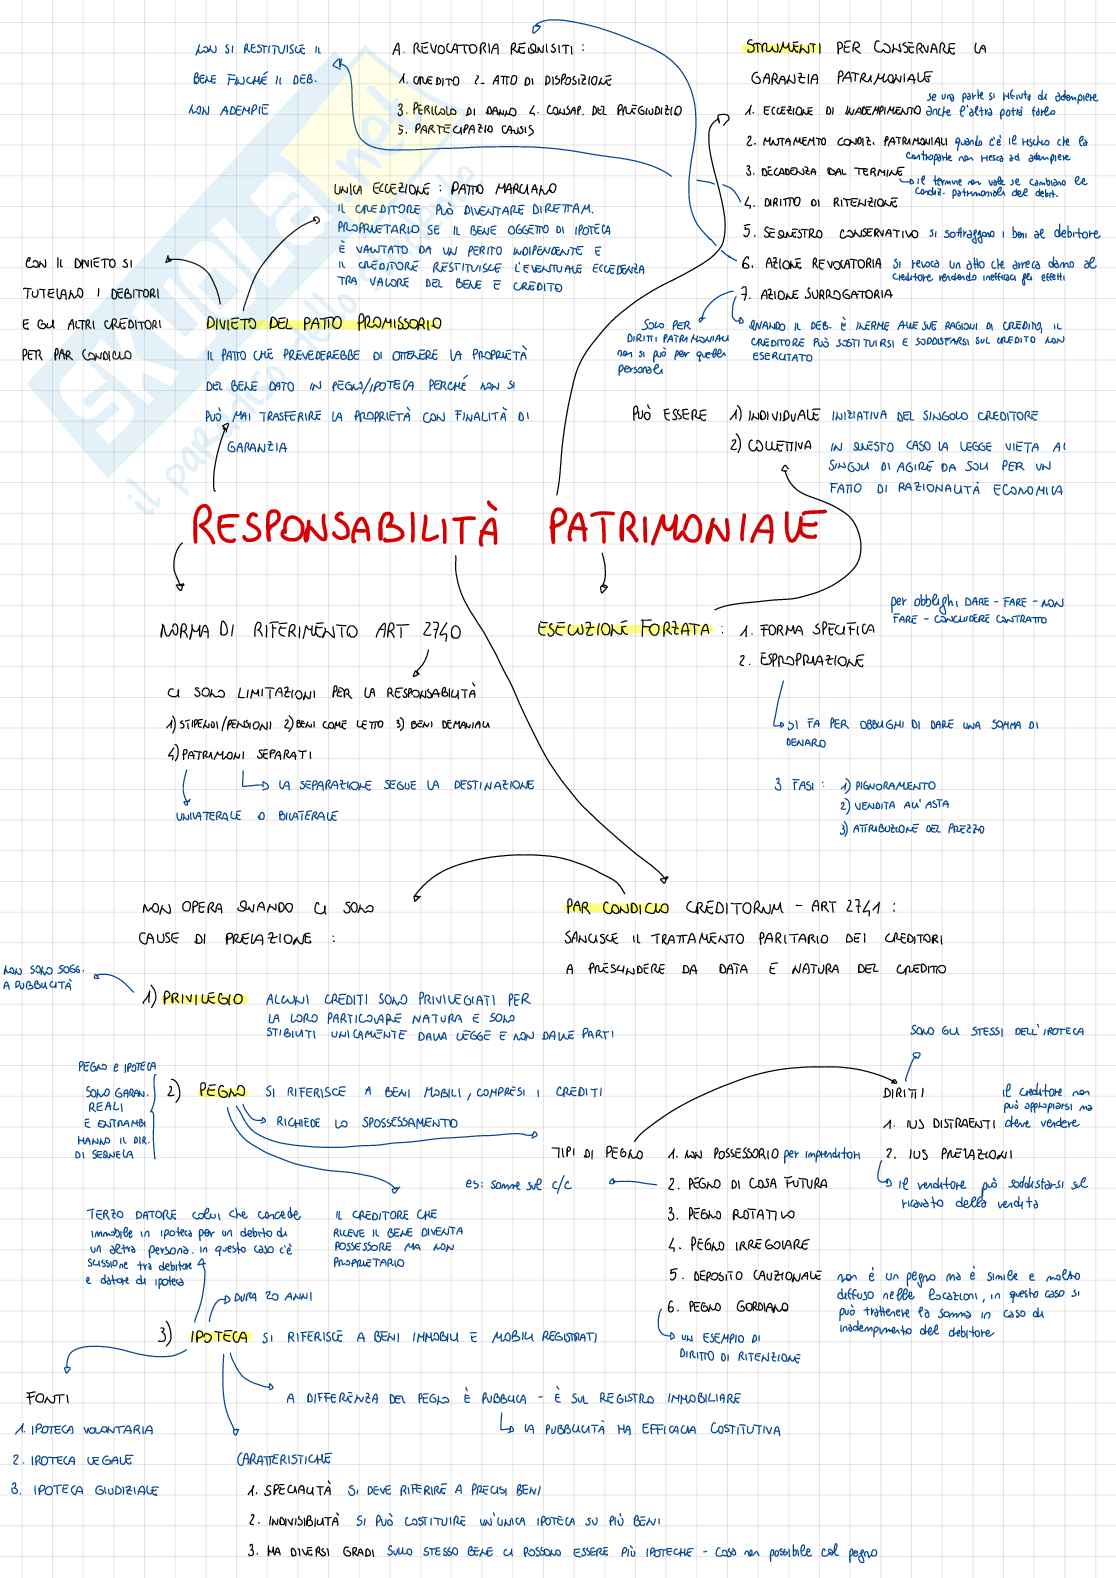 NON SI RESTITUISCE IL
BENE FINCHÉ IL DEB.
NON ADEMPIE
A. REVOCATORIA REQUISITI :
1. CREDITO 2- ATTO DI DISPOSIZIONE
3. PERICOLO DI DANNO 4. CONSAP. DEL PREGIUDIZIO
5. PARTECIPAZIO CAUSIS
STRUMENTI PER CONSERVARE LA
GARANZIA PATRIMONIALE
1. ECCEZIONE DI INADEMPIMENTO se una parte si rifiuta di adempiere
anche l'altra potrà farlo
2. MUTAMENTO CONDIZ. PATRIMONIALI quando c'è il rischio che la
controparte non riesca ad adempiere
3. DECADENZA DAL TERMINE
il termine non vale se cambiano le
condiz. patrimoniali del debit.
4. DIRITTO DI RITENZIONE
5. SEQUESTRO CONSERVATIVO si sottraggono i beni al debitore
6. AZIONE REVOCATORIA si revoca un atto che arreca danno al
creditore rendendo inefficaci gli effetti
7. AZIONE SURROGATORIA
SOLO PER
DIRITTI PATRIMONIALI
non si può per quelli
personali
QUANDO IL DEB. È INERME ALLE SUE RAGIONI DI CREDITO, IL
CREDITORE PUÒ SOSTITUIRSI E SODDISFARSI SUL CREDITO NON
ESERCITATO
UNICA ECCEZIONE : PATTO MARCIANO
IL CREDITORE PUÒ DIVENTARE DIRETTAM.
PROPRIETARIO SE IL BENE OGGETTO DI IPOTECA
È VALUTATO DA UN PERITO INDIPENDENTE E
IL CREDITORE RESTITUISCE L'EVENTUALE ECCEDENZA
TRA VALORE DEL BENE E CREDITO
CON IL DIVIETO SI
TUTELANO I DEBITORI
E GLI ALTRI CREDITORI
PER PAR CONDICIO
DIVIETO DEL PATTO PROMISSORIO
IL PATTO CHE PREVEDEREBBE DI OTTENERE LA PROPRIETÀ
DEL BENE DATO IN PEGNO/IPOTECA PERCHÉ NON SI
PUÒ MAI TRASFERIRE LA PROPRIETÀ CON FINALITÀ DI
GARANZIA
PUÒ ESSERE
1) INDIVIDUALE INIZIATIVA DEL SINGOLO CREDITORE
2) COLLETTIVA IN QUESTO CASO LA LEGGE VIETA AI
SINGOLI DI AGIRE DA SOLI PER UN
FATTO DI RAZIONALITÀ ECONOMICA
RESPONSABILITÀ PATRIMONIALE
NORMA DI RIFERIMENTO ART 2740
CI SONO LIMITAZIONI PER LA RESPONSABILITÀ
1) STIPENDI/PENSIONI 2) BENI COME LETTO 3) BENI DEMANIALI
4) PATRIMONI SEPARATI
LA SEPARAZIONE SEGUE LA DESTINAZIONE
UNILATERALE O BILATERALE
ESECUZIONE FORZATA : 1. FORMA SPECIFICA
per obblighi DARE - FARE - NON
FARE - CONCLUDERE CONTRATTO
2. ESPROPRIAZIONE
SI FA PER OBBLIGHI DI DARE UNA SOMMA DI
DENARO
3 FASI : 1) PIGNORAMENTO
2) VENDITA ALL'ASTA
3) ATTRIBUZIONE DEL PREZZO
NON OPERA QUANDO CI SONO
CAUSE DI PRELAZIONE :
PAR CONDICIO CREDITORUM - ART 2741 :
SANCISCE IL TRATTAMENTO PARITARIO DEI CREDITORI
A PRESCINDERE DA DATA E NATURA DEL CREDITO
NON SONO SOGG.
A PUBBLICITÀ
1) PRIVILEGIO ALCUNI CREDITI SONO PRIVILEGIATI PER
LA LORO PARTICOLARE NATURA E SONO
STIBILITI UNICAMENTE DALLA LEGGE E NON DALLE PARTI
PEGNO e IPOTECA
SONO GARAN.
REALI
E ENTRAMBI
HANNO IL DIR.
DI SEGUELA
2) PEGNO SI RIFERISCE A BENI MOBILI, COMPRESI I CREDITI
RICHIEDE LO SPOSSESSAMENTO
IL CREDITORE CHE
RICEVE IL BENE DIVENTA
POSSESSORE MA NON
PROPRIETARIO
TIPI DI PEGNO
1. NON POSSESSORIO per imprenditori
2. PEGNO DI COSA FUTURA
es: somme sul c/c
3. PEGNO ROTATIVO
4. PEGNO IRREGOLARE
5. DEPOSITO CAUZIONALE non è un pegno ma è simile e molto
diffuso nelle locazioni, in questo caso si
può trattenere la somma in caso di
inadempimento del debitore
6. PEGNO GORDIANO
UN ESEMPIO DI
DIRITTO DI RITENZIONE
SONO GLI STESSI DELL'IPOTECA
DIRITTI
1. IUS DISTRAENTI il creditore non
può appropiarsi ma
deve vendere
2. IUS PRELAZIONI
il venditore può soddisfarsi sul
ricavato della vendita
TERZO DATORE colui che concede
immobile in ipoteca per un debito di
un altra persona. in questo caso c'è
scissione tra debitore
e datore di ipoteca
DURA 20 ANNI
3) IPOTECA SI RIFERISCE A BENI IMMOBILI E MOBILI REGISTRATI
FONTI
1. IPOTECA VOLONTARIA
2. IPOTECA LEGALE
3. IPOTECA GIUDIZIALE
A DIFFERENZA DEL PEGNO È PUBBLICA - È SUL REGISTRO IMMOBILIARE
LA PUBBLICITÀ HA EFFICACIA COSTITUTIVA
CARATTERISTICHE
1. SPECIALITÀ SI DEVE RIFERIRE A PRECISI BENI
2. INDIVISIBILITÀ SI PUÒ COSTITUIRE UN'UNICA IPOTECA SU PIÙ BENI
3. HA DIVERSI GRADI SULLO STESSO BENE CI POSSONO ESSERE PIÙ IPOTECHE - cosa non possibile col pegno